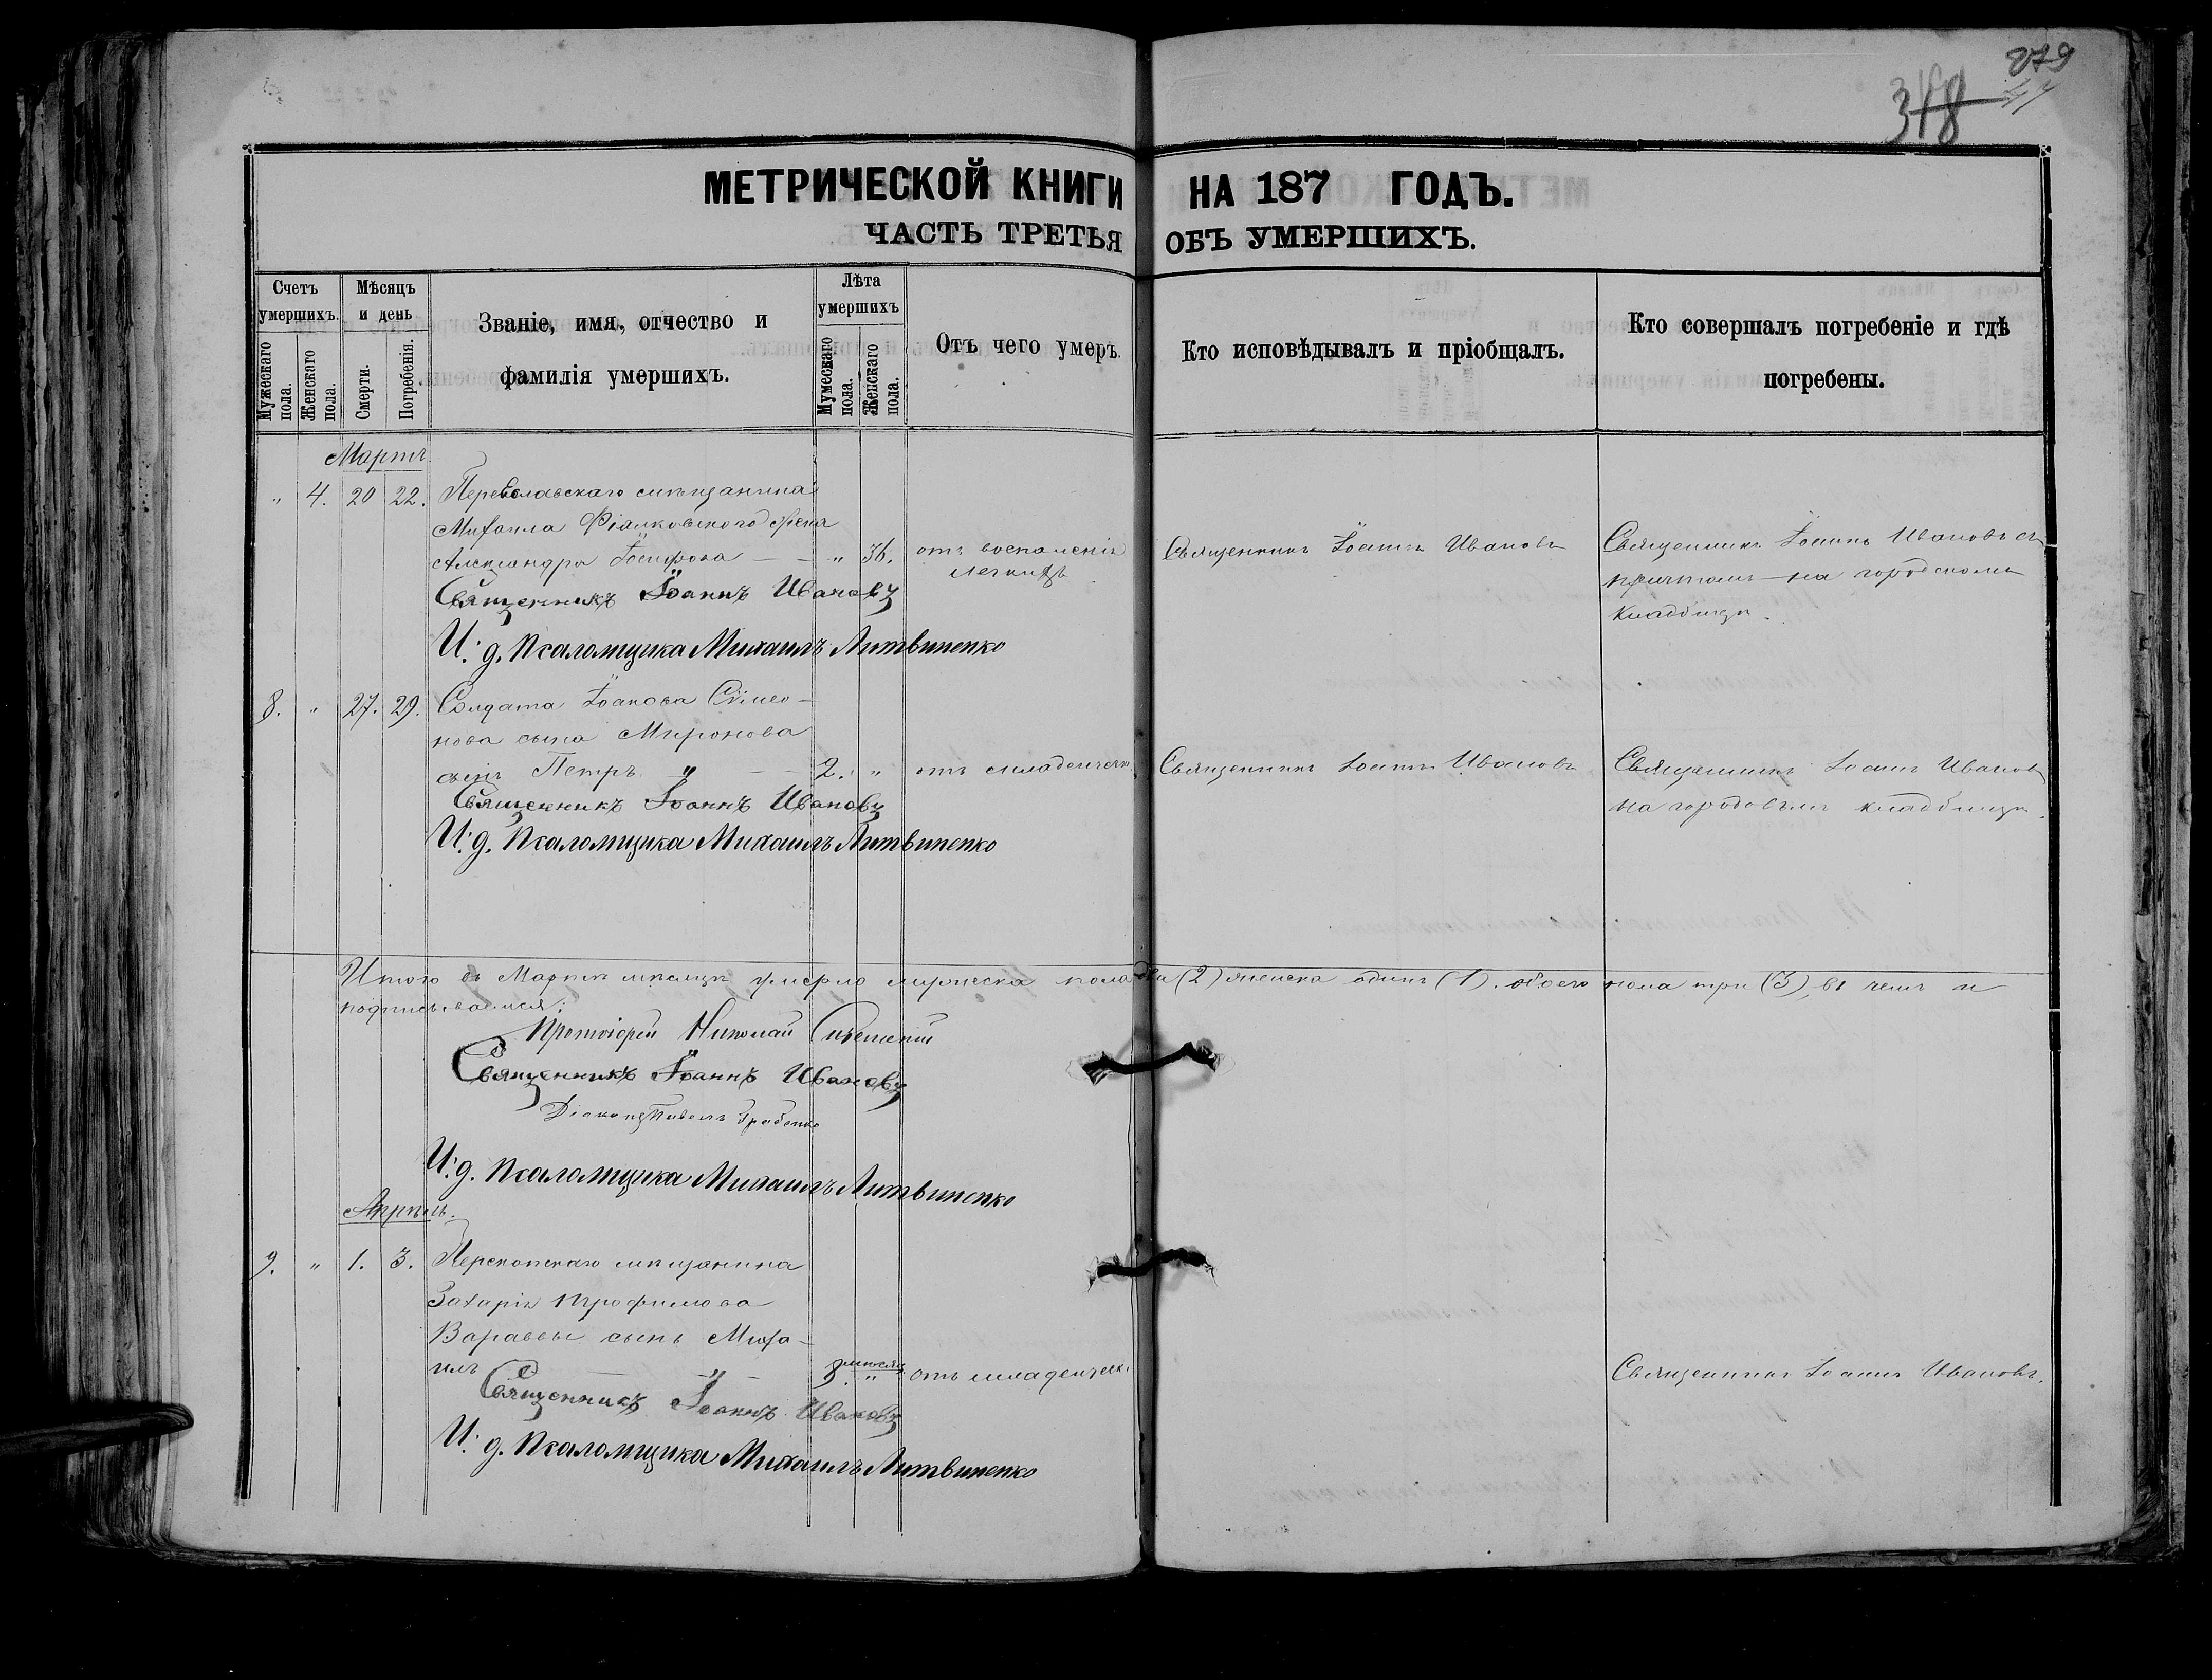 279
318
МЕТРИЧЕСКОЙ КНИГИ НА 187 ГОДЪ.
ЧАСТЬ ТРЕТЬЯ ОБЪ УМЕРШИХЪ.
Счетъ умершихъ.
Мужескаго пола.
Женскаго пола.
Мѣсяцъ и день
Смерти.
Погребенія.
Званіе, имя, отчество и
фамилія умершихъ.
Лѣта умершихъ
Мумескаго пола.
Женскаго пола.
Отъ чего умеръ.
Кто исповѣдывалъ и пріобщалъ.
Кто совершалъ погребеніе и гдѣ
погребены.
Мартъ.
" 4. 20 22. Переяславскаго мѣщанина
Михаила Фіалковскаго жена
Александра Іосифова — " 36. отъ воспаленія
легкихъ
Священникъ Іоаннъ Ивановъ
Священникъ Іоаннъ Ивановъ съ
причтомъ на городскомъ
кладбищѣ.
Священникъ Іоаннъ Ивановъ
И. д. Псаломщика Михаилъ Литвиненко
8. " 27. 29. Солдата Іоакова Сѵмео-
нова сына Миронова
сынъ Петръ " — 2. " отъ младенческ.
Священникъ Іоаннъ Ивановъ
Священникъ Іоаннъ Ивановъ
на городовомъ кладбищѣ.
Священникъ Іоаннъ Ивановъ
И. д. Псаломщика Михаилъ Литвиненко
Итого въ Мартѣ мѣсяцѣ умерло мужеска пола два (2) женска одинъ (1). обоего пола три (3), въ чемъ и
подписываемся:
Протоіерей Николай
Священникъ Іоаннъ Ивановъ
Діаконъ Павелъ
И. д. Псаломщика Михаилъ Литвиненко
Апрѣль.
9. " 1. 3. Перекопскаго мѣщанина
Захарія Трофимова
Вараввы сынъ Миха-
илъ — " — 8. мѣсяц. " отъ младенческ.
Священникъ Іоаннъ Ивановъ.
Священникъ Іоаннъ Ивановъ
И. д. Псаломщика Михаилъ Литвиненко